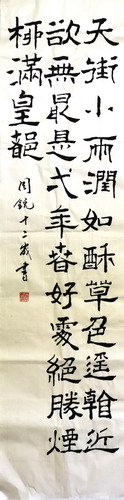 天街小雨潤如酥草色遥看近
卻無最是弌年春好處絕勝煙
柳滿皇都
周銳十二歲書